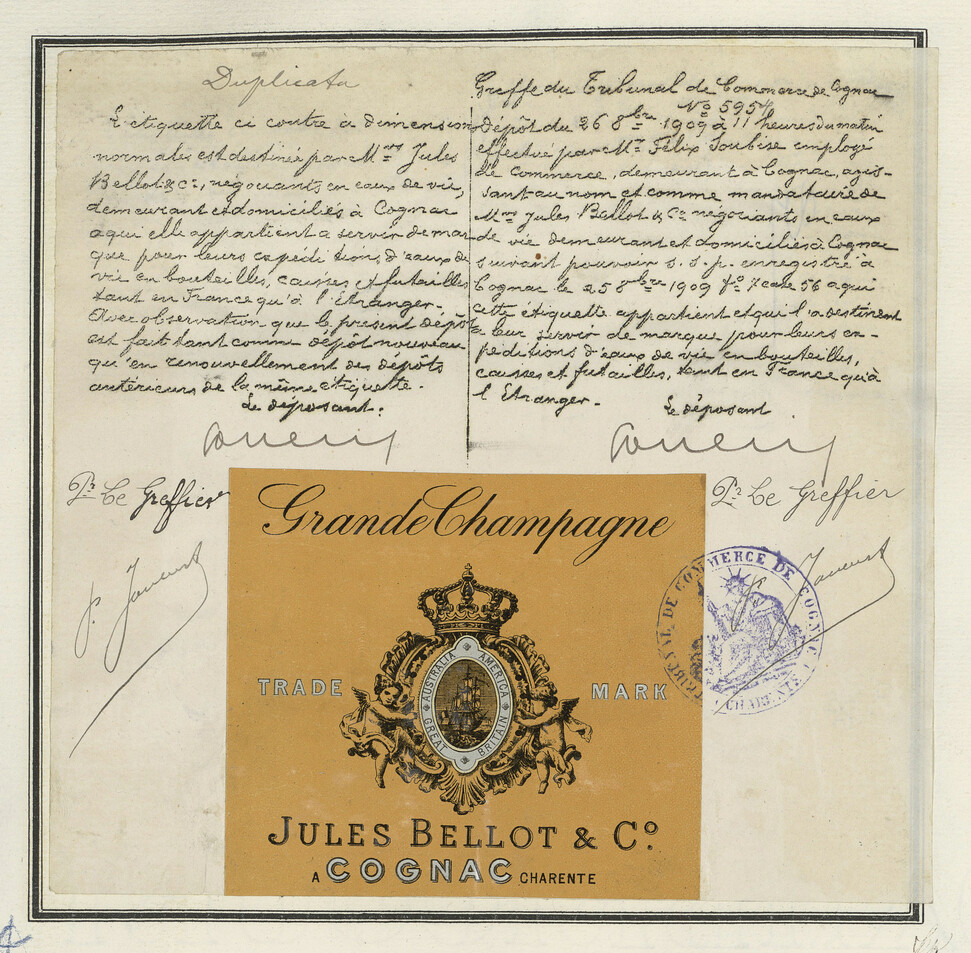 Duplicata
L'étiquette ci contre à dimensions
normales est destinée par Mrs Jules
Bellot & Cie, négociants en eaux de vie,
demeurant et domiciliés à Cognac,
a qui elle appartient a servir de mar-
que pour leurs expéditions d'eaux de
vie en bouteilles, caisses et futailles
tant en France qu'à l'Etranger.
Avec observation que le présent dépôt
est fait tant comme dépôt nouveau
qu'en renouvellement des dépôts
antérieurs de la même étiquette.
Le déposant:
Pr Le Greffier
Greffe du Tribunal de Commerce de Cognac
No 5954
dépôt du 26 8bre 1909 à 11 heures du matin
effectué par Mr Félix Soubise employé
de commerce, demeurant à Cognac, agis-
sant au nom et comme mandataire de
Mrs Jules Bellot & Cie négociants en eaux
de vie demeurant et domiciliés à Cognac
suivant pouvoir s.s.p. enregistré à
Cognac le 25 8bre 1909 fo 7 case 56 a qui
cette étiquette appartient et qui l'a destinent
a leur servir de marque pour leurs ex-
péditions d'eaux de vie en bouteilles,
caisses et futailles, tant en France qu'à
l'Etranger.
Le déposant
Pr Le Greffier
Grande Champagne
TRADE MARK
AUSTRALIA AMERICA
GREAT BRITAIN
JULES BELLOT & Co.
A COGNAC CHARENTE
TRIBUNAL DE COMMERCE DE COGNAC
CHARENTE